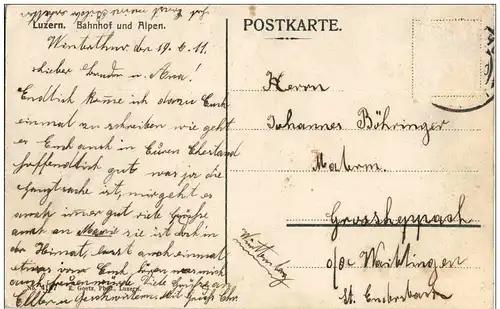 Luzern. Bahnhof und Alpen.
Winterthur den 19.6.11.
Lieber und Ana!
Endlich komme ich dazu Euch
einmal zu schreiben wie geht
es Euch auch in Euren Ehestand
hoffendlich gut was ja die
ist, mir geht es
auch immer gut viele Grüsse
auch an Marie sie ist doch in
der Heimat, lasst auch einmal
etwas von Euch
auch viele Grüsse an
Eltern u Geschwistern. Mit Gruss
No. 4187 E. Goetz, Phot., Luzern.
POSTKARTE.
Herrn
Johannes Böhringer
Grossheppach
o/a Waiblingen
St. Endersbach
Württemberg